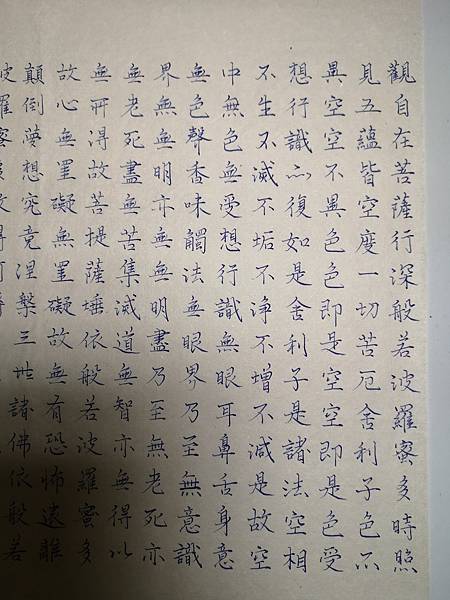 觀自在菩薩行深般若波羅蜜多時照
見五蘊皆空度一切苦厄舍利子色不
異空空不異色色即是空空即是色受
想行識亦復如是舍利子是諸法空相
不生不滅不垢不淨不增不減是故空
中無色無受想行識無眼耳鼻舌身意
無色聲香味觸法無眼界乃至無意識
界無無明亦無無明盡乃至無老死亦
無老死盡無苦集滅道無智亦無得以
無所得故菩提薩埵依般若波羅蜜多
故心無罣礙無罣礙故無有恐怖遠離
顛倒夢想究竟涅槃三世諸佛依般若
波羅蜜